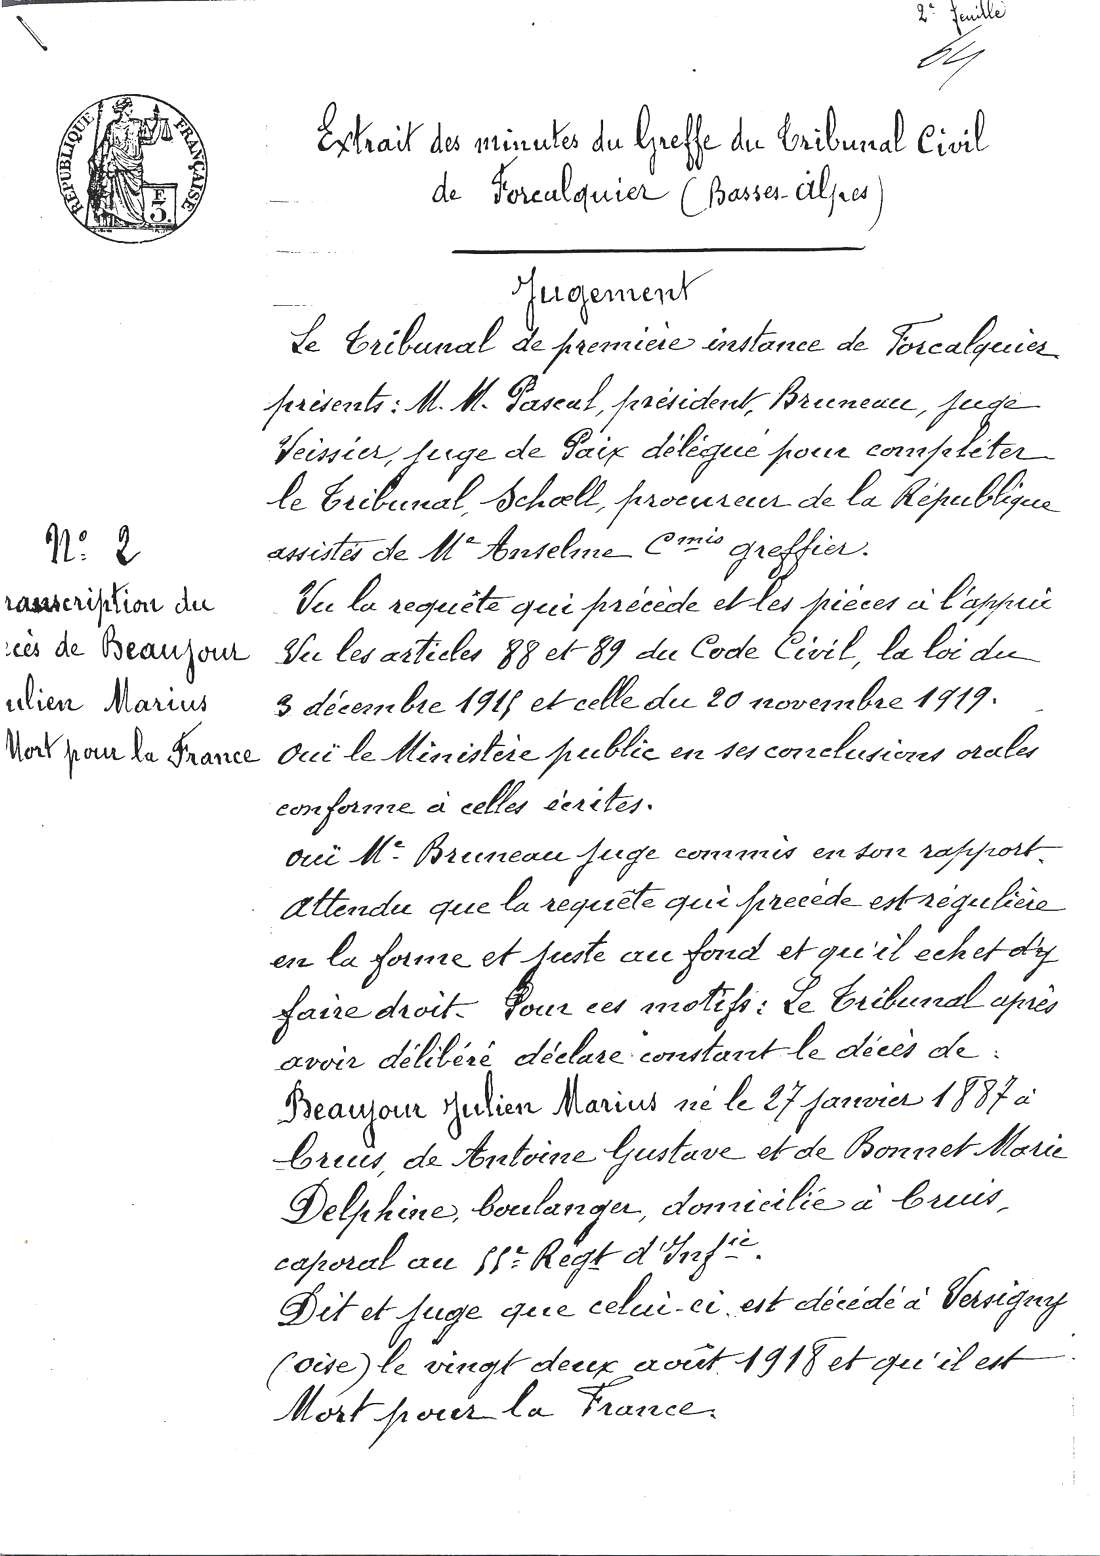 2e feuille
64
RÉPUBLIQUE FRANÇAISE
F
3.
Extrait des minutes du Greffe du Tribunal Civil
de Forcalquier (Basses-Alpes)
Jugement
Le Tribunal de première instance de Forcalquier
présents: M. M. Pascal, président, Bruneau, juge
Veissier, juge de Paix délégué pour compléter
le Tribunal, Schœll, procureur de la République
assistés de Me Anselme Cmis greffier.
No. 2
ranscription du
cès de Beaujour
ulien Marius
Mort pour la France
Vu la requête qui précède et les pièces à l'appui
Vu les articles 88 et 89 du Code Civil, la loi du
3 décembre 1915 et celle du 20 novembre 1919.
Ouï le Ministère public en ses conclusions orales
conforme à celles écrites.
Ouï Me Bruneau juge commis en son rapport.
Attendu que la requête qui precède est régulière
en la forme et juste au fond et qu'il echet d'y
faire droit. Pour ces motifs: Le Tribunal après
avoir délibéré déclare constant le décès de:
Beaujour Julien Marius né le 27 janvier 1887 à
Cruis, de Antoine Gustave et de Bonnet Marie
Delphine, boulanger, domicilié à Cruis,
caporal au 55e Regt d'Infie.
Dit et juge que celui-ci est décédé à Versigny
(oise) le vingt deux août 1918 et qu'il est
Mort pour la France.